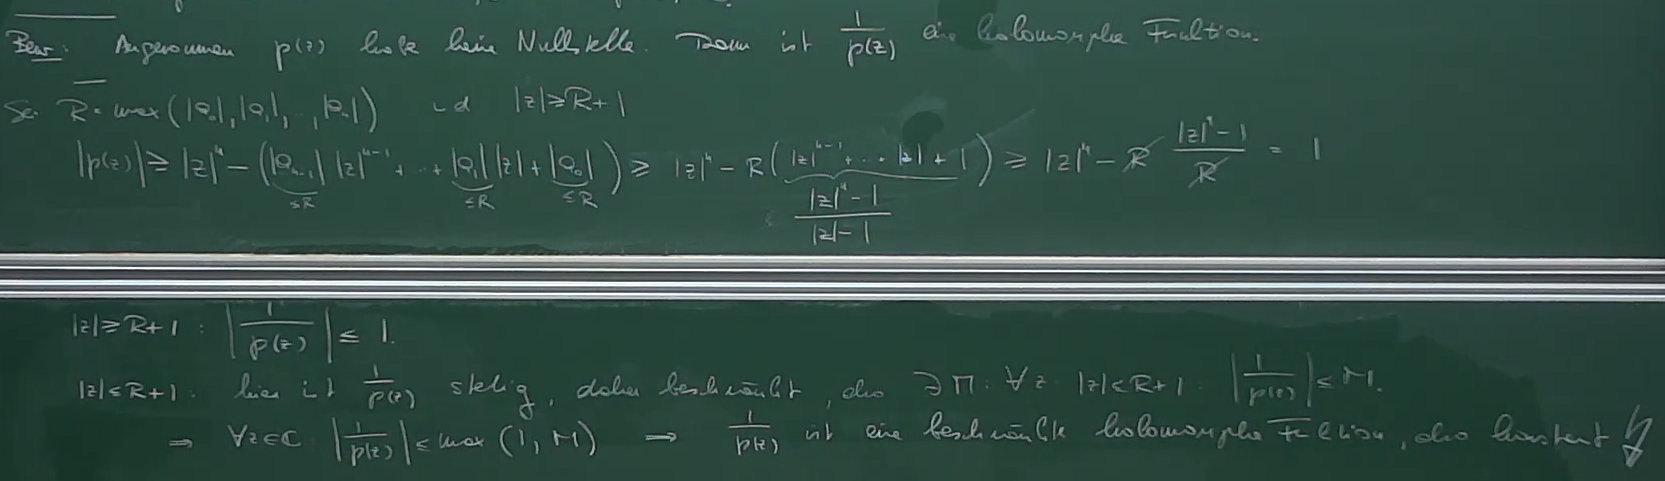 Bew: Angenommen p(z) habe keine Nullstelle. Dann ist 1/p(z) eine holomorphe Funktion.
Sei R = max(|a₀|, |a₁|, ..., |aₙ|) und |z| ≥ R+1
|p(z)| ≥ |z|ⁿ − (|aₙ₋₁| |z|ⁿ⁻¹ + ... + |a₁| |z| + |a₀|) ≥ |z|ⁿ − R (|z|ⁿ⁻¹ + ... |z| + 1) ≥ |z|ⁿ − R (|z|ⁿ − 1)/R = 1
≤R ≤R ≤R (|z|ⁿ − 1)/(|z| − 1)
|z| ≥ R+1 : |1/p(z)| ≤ 1.
|z| ≤ R+1 : hier ist 1/p(z) stetig, daher beschränkt, also ∃ M : ∀ z : |z| ≤ R+1 : |1/p(z)| ≤ M.
⇒ ∀z∈ℂ : |1/p(z)| ≤ max (1, M) ⇒ 1/p(z) ist eine beschränkte holomorphe Funktion, also konstant ↯